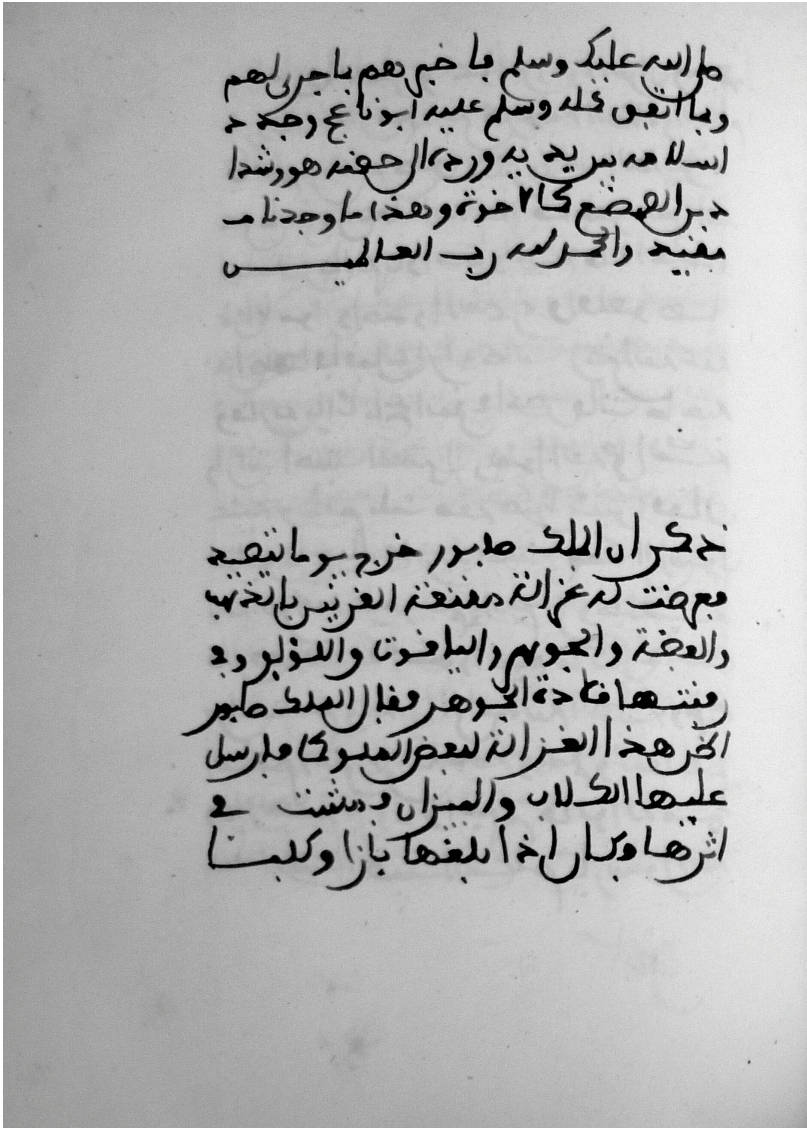 صل الله عليك وسلم فاخبرهم باجرى لهم
وبما اتفق له وسلم عليه ابوناجع وجدد
اسلامه بين يديه ورده الى حصنه هو ورشدا
وهذا ما وجدنا من
مفيد والحمد لله رب العالمين
ذكر ان الملك صابور خرج يوما نتصيد
فعرضت له غزالة مقنعة القرنين بالذهب
والفضة والجوهر والياقوت واللؤلؤ وفي
رقبتها قلادة الجوهر فقال الملك صابور
اخر هذا الغزالة لبعض الملوك فارسل
عليها الكلاب والبيزان ومشت في
اثرها وكان اذا بلغها بازا وكلبا